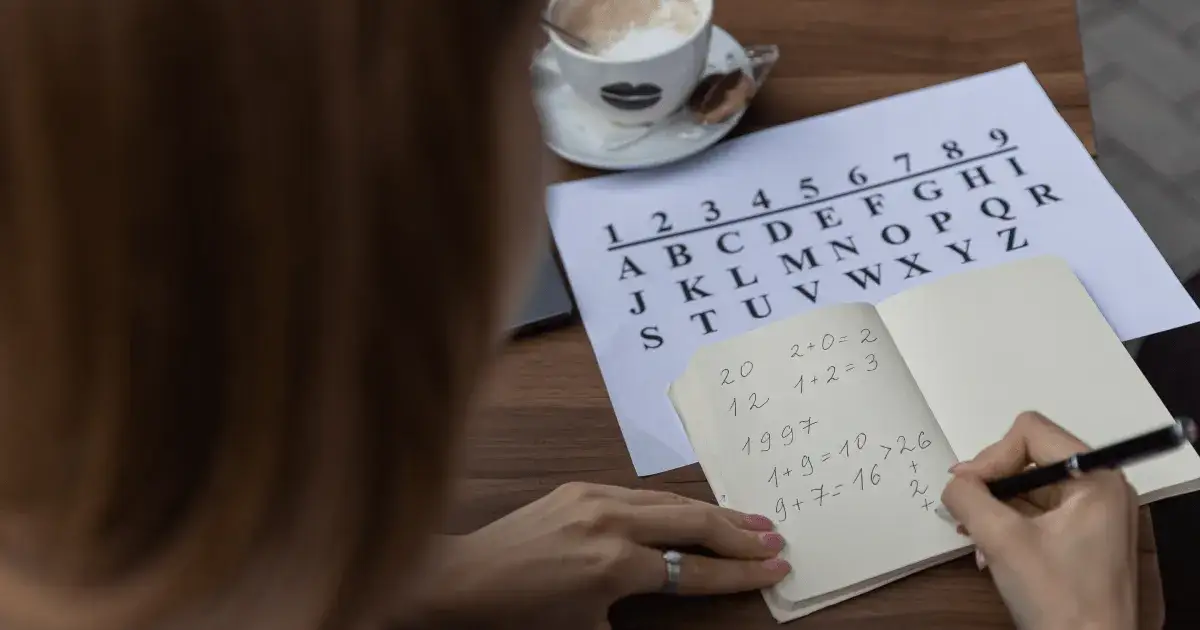 1 2 3 4 5 6 7 8 9
A B C D E F G H I
J K L M N O P Q R
S T U V W X Y Z
20 2+0=2
12 1+2=3
1997
1+9=10 >26
9+7=16 +
2
+